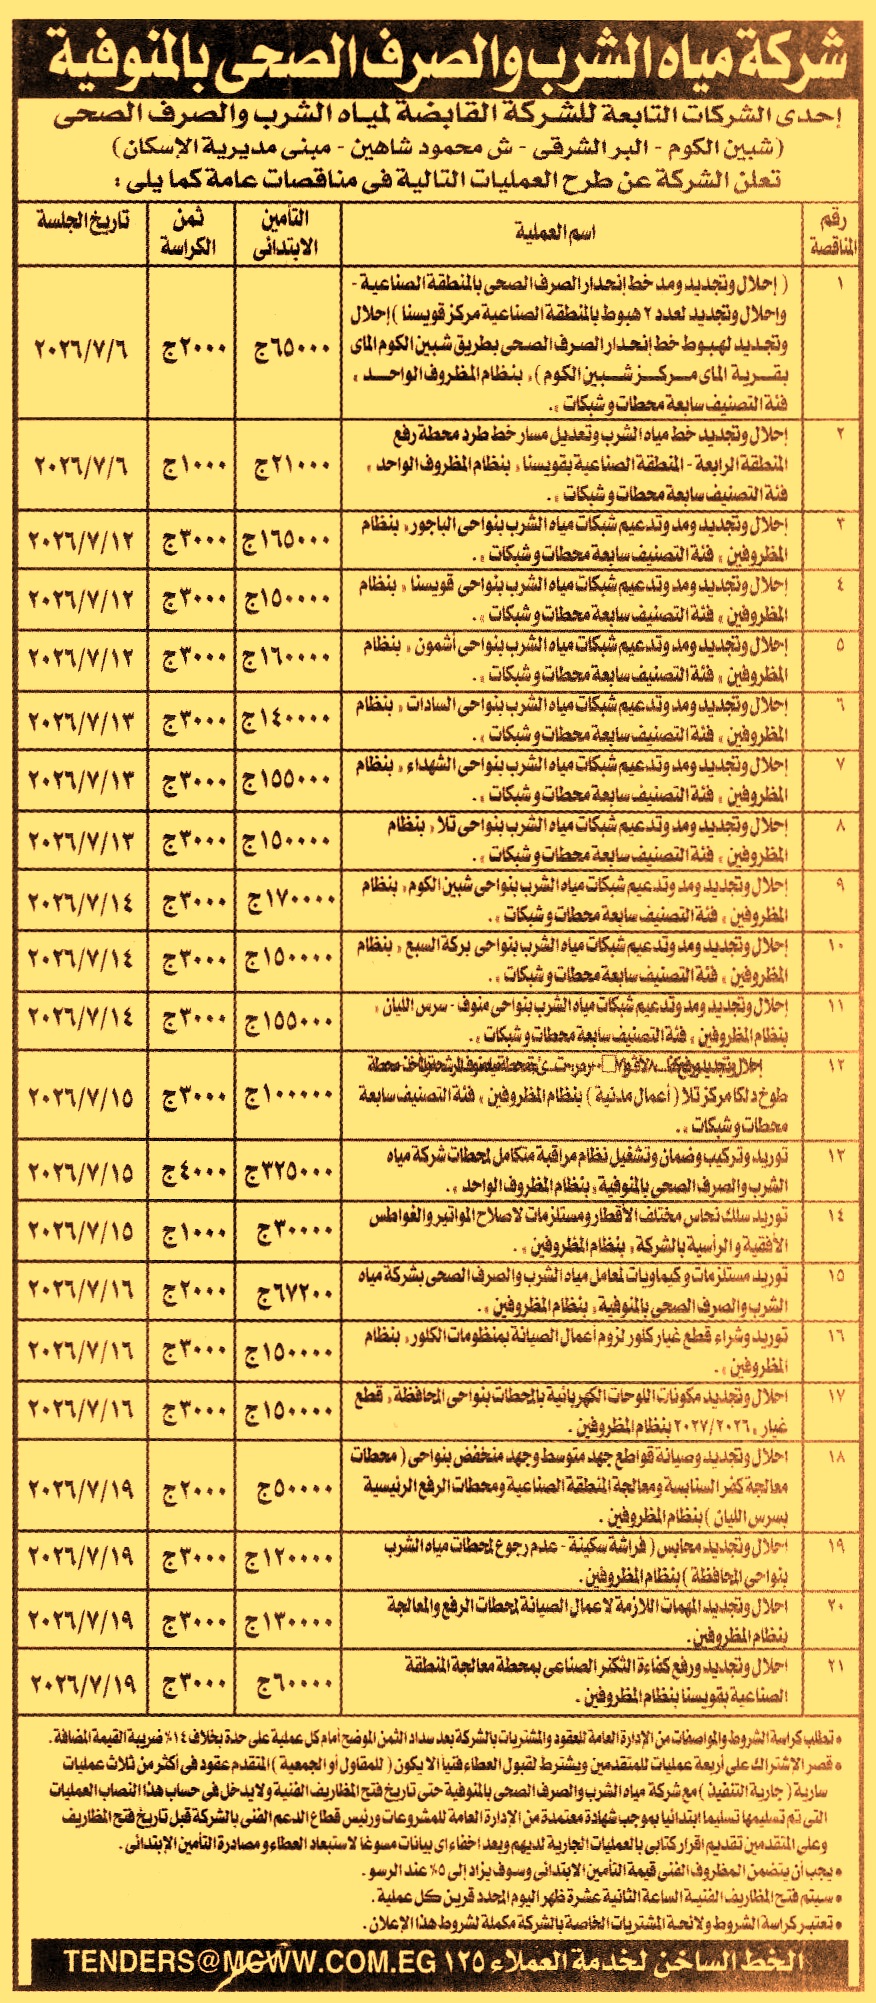 شركة مياه الشرب والصرف الصحى بالمنوفية
إحدى الشركات التابعة للشركة القابضة لمياه الشرب والصرف الصحى
(شبين الكوم - البر الشرقى - ش محمود شاهين - مبنى مديرية الإسكان)
تعلن الشركة عن طرح العمليات التالية فى مناقصات عامة كما يلى :
رقم المناقصة | اسم العملية | التأمين الابتدائى | ثمن الكراسة | تاريخ الجلسة
١ | ( إحلال وتجديد ومد خط إنحدار الصرف الصحى بالمنطقة الصناعية -
وإحلال وتجديد لعدد ٢ هبوط بالمنطقة الصناعية مركز قويسنا ) إحلال
وتجديد لهبوط خط إنحدار الصرف الصحى بطريق شبين الكوم الماى
بقرية الماى مركز شبين الكوم )، بنظام المظروف الواحد ،
فئة التصنيف سابعة محطات وشبكات ، . | ٦٥٠٠٠ج | ٢٠٠٠ج | ٢٠٢٦/٧/٦
٢ | إحلال وتجديد خط مياه الشرب وتعديل مسار خط طرد محطة رفع
المنطقة الرابعة - المنطقة الصناعية بقويسنا ، بنظام المظروف الواحد ،
فئة التصنيف سابعة محطات وشبكات ، . | ٢١٠٠٠ج | ١٠٠٠ج | ٢٠٢٦/٧/٦
٣ | إحلال وتجديد ومد وتدعيم شبكات مياه الشرب بنواحى الباجور، بنظام
المظروفين ، فئة التصنيف سابعة محطات وشبكات ، . | ١٦٥٠٠٠ج | ٣٠٠٠ج | ٢٠٢٦/٧/١٢
٤ | إحلال وتجديد ومد وتدعيم شبكات مياه الشرب بنواحى قويسنا ، بنظام
المظروفين ، فئة التصنيف سابعة محطات وشبكات ، . | ١٥٠٠٠٠ج | ٣٠٠٠ج | ٢٠٢٦/٧/١٢
٥ | إحلال وتجديد ومد وتدعيم شبكات مياه الشرب بنواحى أشمون ، بنظام
المظروفين ، فئة التصنيف سابعة محطات وشبكات ، . | ١٦٠٠٠٠ج | ٣٠٠٠ج | ٢٠٢٦/٧/١٢
٦ | إحلال وتجديد ومد وتدعيم شبكات مياه الشرب بنواحى السادات ، بنظام
المظروفين ، فئة التصنيف سابعة محطات وشبكات ، . | ١٤٠٠٠٠ج | ٣٠٠٠ج | ٢٠٢٦/٧/١٣
٧ | إحلال وتجديد ومد وتدعيم شبكات مياه الشرب بنواحى الشهداء ، بنظام
المظروفين ، فئة التصنيف سابعة محطات وشبكات ، . | ١٥٥٠٠٠ج | ٣٠٠٠ج | ٢٠٢٦/٧/١٣
٨ | إحلال وتجديد ومد وتدعيم شبكات مياه الشرب بنواحى تلا ، بنظام
المظروفين ، فئة التصنيف سابعة محطات وشبكات ، . | ١٥٠٠٠٠ج | ٣٠٠٠ج | ٢٠٢٦/٧/١٣
٩ | إحلال وتجديد ومد وتدعيم شبكات مياه الشرب بنواحى شبين الكوم، بنظام
المظروفين ، فئة التصنيف سابعة محطات وشبكات ، . | ١٧٠٠٠٠ج | ٣٠٠٠ج | ٢٠٢٦/٧/١٤
١٠ | إحلال وتجديد ومد وتدعيم شبكات مياه الشرب بنواحى بركة السبع ، بنظام
المظروفين ، فئة التصنيف سابعة محطات وشبكات ، . | ١٥٠٠٠٠ج | ٣٠٠٠ج | ٢٠٢٦/٧/١٤
١١ | إحلال وتجديد ومد وتدعيم شبكات مياه الشرب بنواحى منوف - سرس الليان ،
بنظام المظروفين ، فئة التصنيف سابعة محطات وشبكات ، . | ١٥٥٠٠٠ج | ٣٠٠٠ج | ٢٠٢٦/٧/١٤
١٢ | إحلال وتجديد ورفع محطة
طوخ دلكا مركز تلا ( أعمال مدنية ) بنظام المظروفين ، فئة التصنيف سابعة
محطات وشبكات ، . | ١٠٠٠٠٠ج | ٣٠٠٠ج | ٢٠٢٦/٧/١٥
١٣ | توريد وتركيب وضمان وتشغيل نظام مراقبة متكامل لمحطات شركة مياه
الشرب والصرف الصحى بالمنوفية، بنظام المظروف الواحد ، . | ٣٢٥٠٠٠ج | ٤٠٠٠ج | ٢٠٢٦/٧/١٥
١٤ | توريد سلك نحاس مختلف الأقطار ومستلزمات لاصلاح المواتير والغواطس
الأفقية و الرأسية بالشركة ، بنظام المظروفين ، . | ٣٠٠٠٠ج | ١٠٠٠ج | ٢٠٢٦/٧/١٥
١٥ | توريد مستلزمات وكيماويات لمعامل مياه الشرب والصرف الصحى بشركة مياه
الشرب والصرف الصحى بالمنوفية ، بنظام المظروفين ، . | ٦٧٢٠٠ج | ٢٠٠٠ج | ٢٠٢٦/٧/١٦
١٦ | توريد وشراء قطع غيار كلور لزوم أعمال الصيانة بمنظومات الكلور ، بنظام
المظروفين ، . | ١٥٠٠٠٠ج | ٣٠٠٠ج | ٢٠٢٦/٧/١٦
١٧ | احلال وتجديد مكونات اللوحات الكهربائية بالمحطات بنواحى المحافظة ، قطع
غيار ، ٢٠٢٧/٢٠٢٦ بنظام المظروفين . | ١٥٠٠٠٠ج | ٣٠٠٠ج | ٢٠٢٦/٧/١٦
١٨ | احلال وتجديد وصيانة قواطع جهد متوسط وجهد منخفض بنواحى ( محطات
معالجة كفر السنابسة ومعالجة المنطقة الصناعية ومحطات الرفع الرئيسية
بسرس الليان ) بنظام المظروفين . | ٥٠٠٠٠ج | ٢٠٠٠ج | ٢٠٢٦/٧/١٩
١٩ | احلال وتجديد محابس ( فراشة سكينة - عدم رجوع لمحطات مياه الشرب
بنواحى المحافظة ) بنظام المظروفين . | ١٢٠٠٠٠ج | ٣٠٠٠ج | ٢٠٢٦/٧/١٩
٢٠ | احلال وتجديد المهمات اللازمة لاعمال الصيانة لمحطات الرفع والمعالجة
بنظام المظروفين . | ١٣٠٠٠٠ج | ٣٠٠٠ج | ٢٠٢٦/٧/١٩
٢١ | احلال وتجديد ورفع كفاءة التكثر الصناعى بمحطة معالجة المنطقة
الصناعية بقويسنا بنظام المظروفين . | ٦٠٠٠٠ج | ٣٠٠٠ج | ٢٠٢٦/٧/١٩
• تطلب كراسة الشروط والمواصفات من الإدارة العامة للعقود والمشتريات بالشركة بعد سداد الثمن الموضح أمام كل عملية على حدة بخلاف ١٤٪ ضريبة القيمة المضافة .
• قصر الإشتراك على أربعة عمليات للمتقدمين ويشترط لقبول العطاء فنياً الا يكون ( للمقاول أو الجمعية ) المتقدم عقود فى أكثر من ثلاث عمليات
سارية ( جارية التنفيذ ) مع شركة مياه الشرب والصرف الصحى بالمنوفية حتى تاريخ فتح المظاريف الفنية ولا يدخل فى حساب هذا النصاب العمليات
التى تم تسليمها تسليما ابتدائيا بموجب شهادة معتمدة من الإدارة العامة للمشروعات ورئيس قطاع الدعم الفنى بالشركة قبل تاريخ فتح المظاريف
وعلى المتقدمين تقديم اقرار كتابى بالعمليات الجارية لديهم ويعد اخفاء اى بيانات مسوغا لاستبعاد العطاء ومصادرة التأمين الإبتدائى .
• يجب أن يتضمن المظروف الفنى قيمة التأمين الابتدائى وسوف يزاد إلى ٥٪ عند الرسو .
• سيتم فتح المظاريف الفنية الساعة الثانية عشرة ظهر اليوم المحدد قرين كل عملية .
• تعتبر كراسة الشروط ولائحة المشتريات الخاصة بالشركة مكملة لشروط هذا الإعلان .
الخط الساخن لخدمة العملاء ١٢٥ TENDERS@MCWW.COM.EG